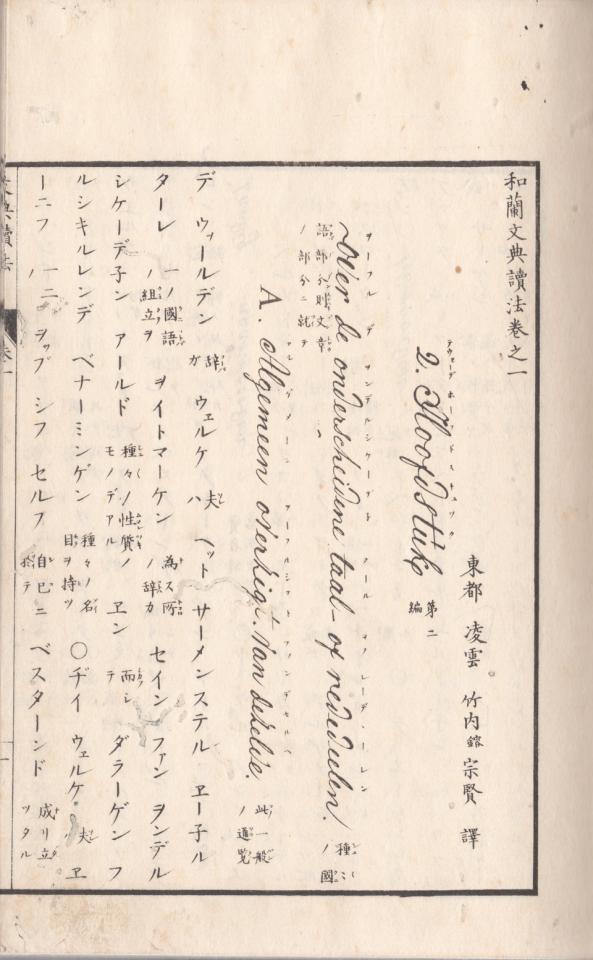 和蘭文典讀法卷之一
東都 凌雲 竹内鎔宗賢 譯
2. Hoofdstuk, 第二編
Over de onderscheidene taal- of rededeelen. 種々ノ國語部分則文章ノ部分ニ就テ
A. Algemeen overzigt. van dezelve. 此一般ノ通覧
デ ウォールデン 辞ガ ウェルケ 夫ハ ヘット サーメンステル ヱー子ル
ターレ 一ノ國語ノ組立ヲ ヲイトマーケン 為ス所ノ辞カ セイン ファン ヲンデル
シケーデ子ン アールド 種々ノ性質ノモノデアル ヱン 而シテ ダラーゲン フ
ルシキルレンデ ベナーミンゲン 種々ノ名目ヲ持ツ 〇ヂイ ウェルケ 夫ハ ヱ
ーニフ 一二ノ ヲップ シフ セルフ 自己ニ於テ ベスターンド 成リ立ツタル
文典讀法